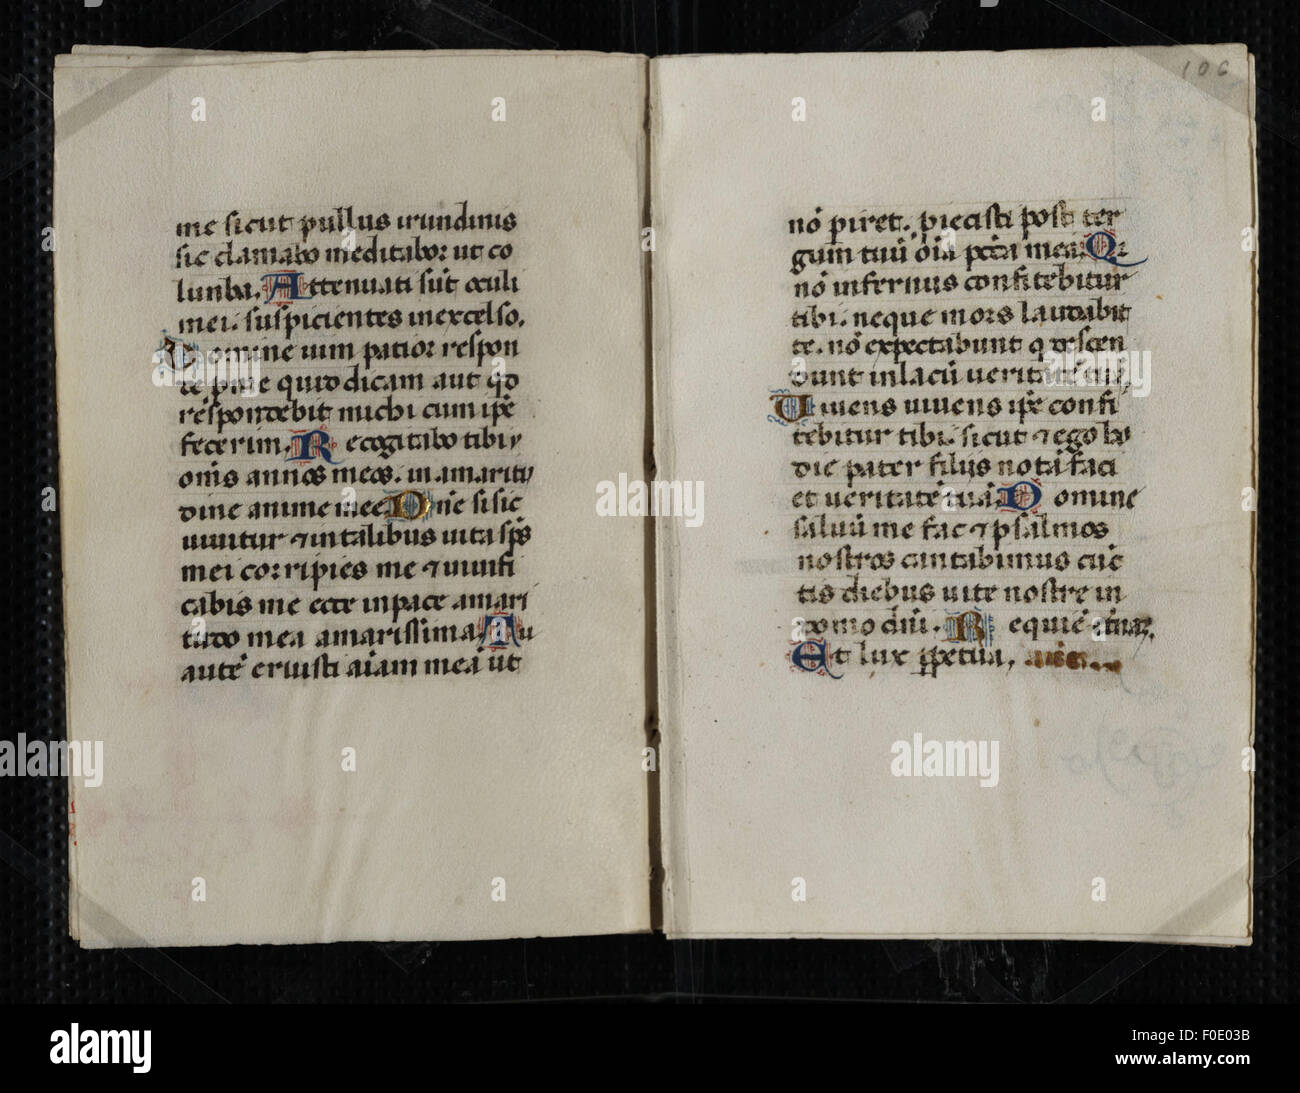 me sicut pullus irundinis
sic clamabo meditabor ut co
lunba. Attenuati sūt oculi
mei. suspicientes in excelso.
Domine uim patior respon
de p me quid dicam aut qd
respondebit michi cum ipē
fecerim. Recogitabo tibi
om̄s annos meos. in amaritu
dine anime mee. Dn̄e si sic
uiuitur ⁊ in talibus uita sp̄s
mei corripies me ⁊ uiuifi
cabis me ecce in pace amari
tudo mea amarissima. Tu
autē eruisti aīam meā ut
106
nō piret. piecisti post ter
gum tuū oīa pc̄ta mea. Qr
nō infernus confitebitur
tibi. neque mors laudabit
te. nō expectabunt q descen
dunt in lacū ueritatē tuā.
Uiuens uiuens ipē confi
tebitur tibi. sicut ⁊ ego ho
die pater filiis notā faci
et ueritatē tuā. Domine
saluū me fac ⁊ psalmos
nostros cantabimus cūc
tis diebus uite nostre in
domo dn̄i. Requiē et̄naz.
Et lux ppetua,
alamy
alamy stock photo
Image ID: F0E03B
www.alamy.com